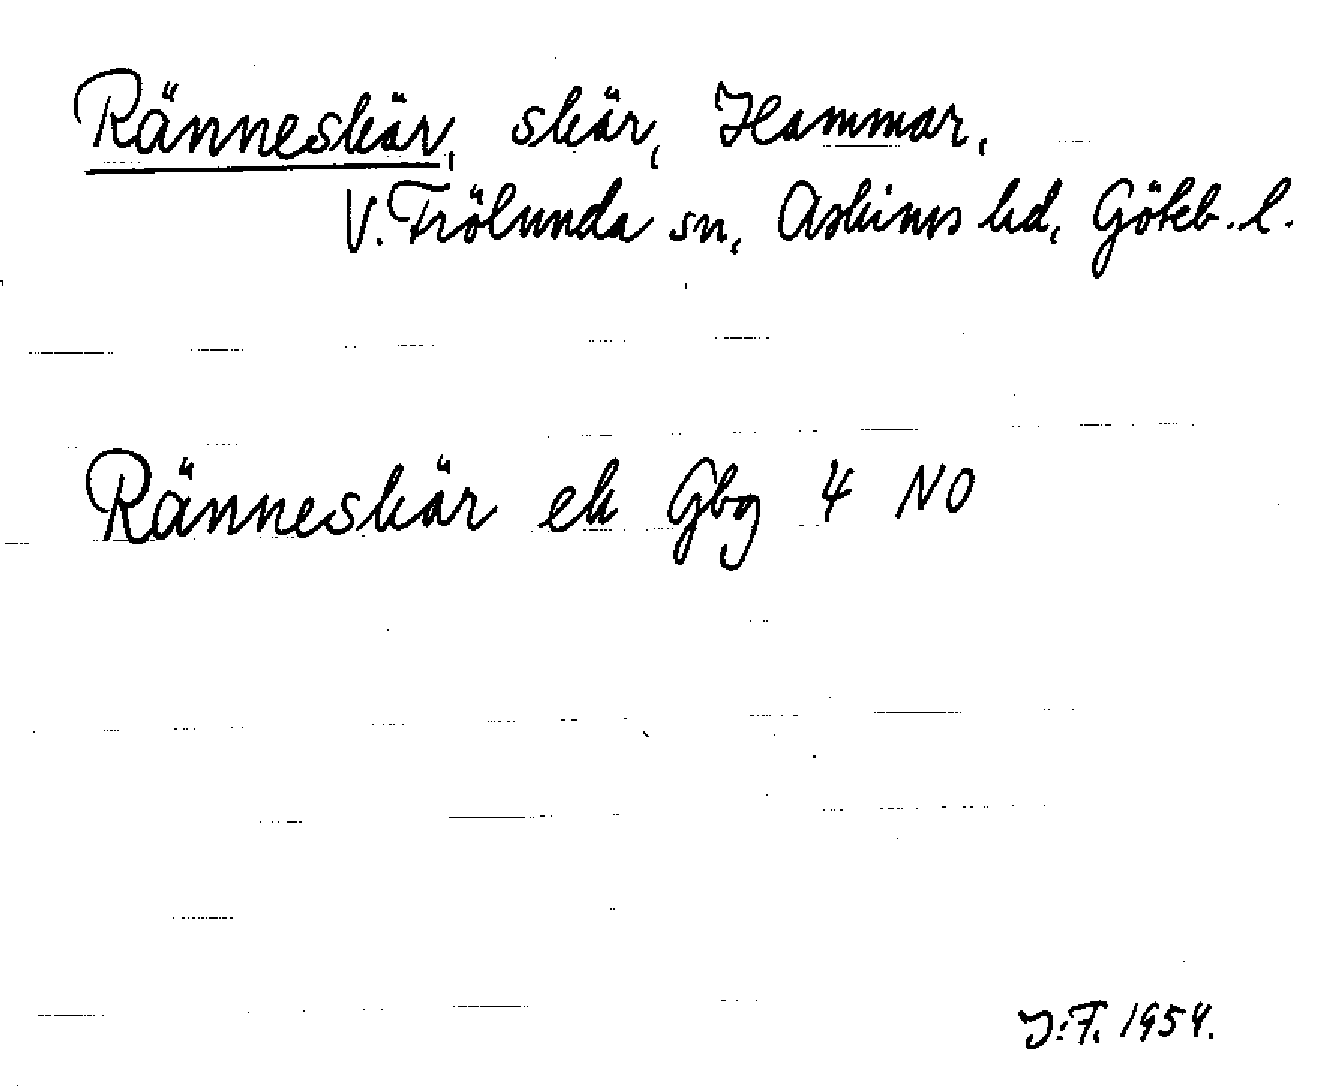 Ränneskär, skär, Hammar,
V. Frölunda sn, Askims hd, Götebˑ l.
Ränneskär ek Gbg 4 NO
J.F. 1954.